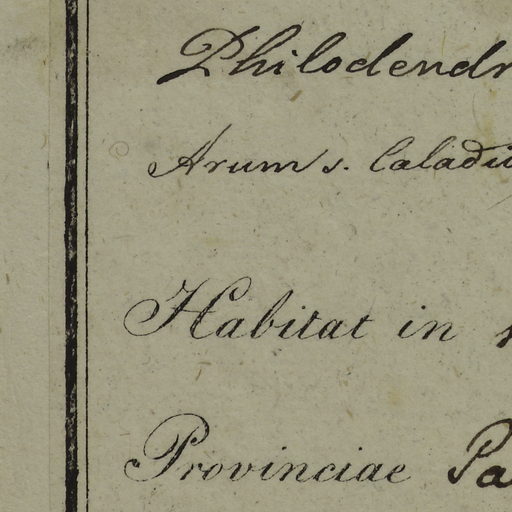 Philodendr
Arum s. Caladiu
Habitat in
Provinciae Pa